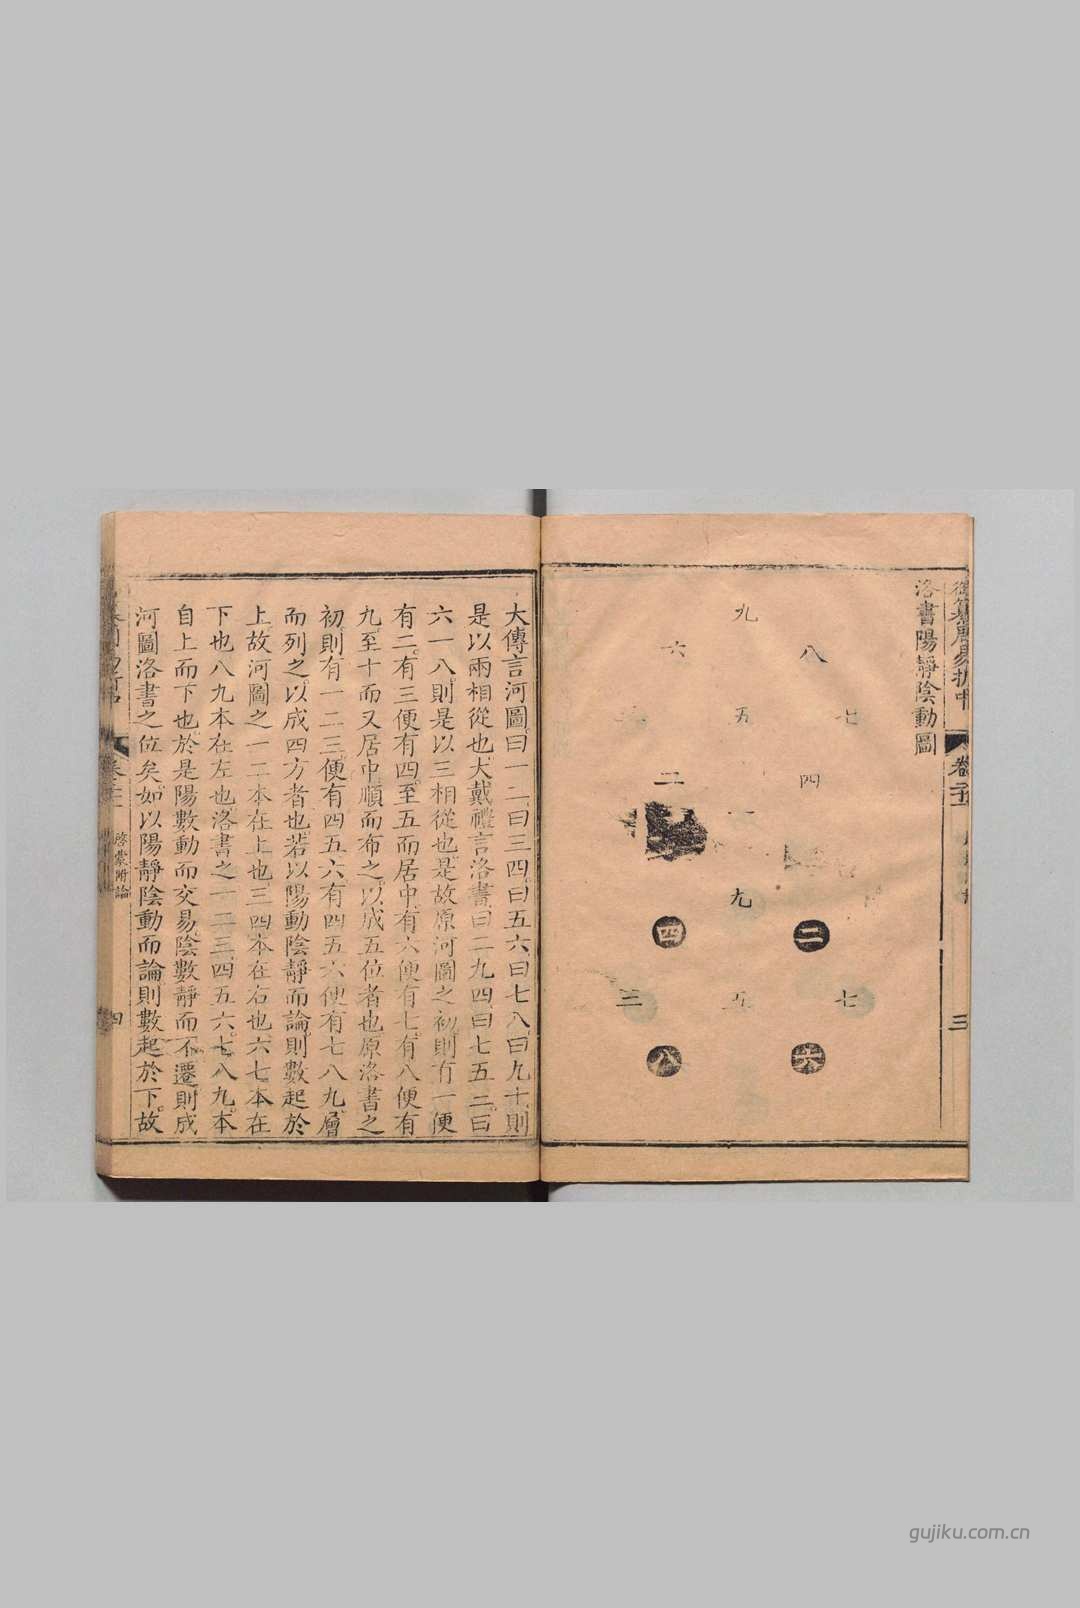 洛書陽靜陰動圖
九
八
六
七
五
四
二
一
九
二
四
七
五
三
六
八
三
大傳言河圖曰一二曰三四曰五六曰七八曰九十則
是以兩相從也大戴禮言洛書曰二九四曰七五三曰
六一八則是以三相從也是故原河圖之初則有一便
有二有三便有四至五而居中有六便有七有八便有
九至十而又居中順而布之以成五位者也原洛書之
初則有一二三便有四五六有四五六便有七八九層
而列之以成四方者也若以陽動陰靜而論則數起於
上故河圖之一二本在上也三四本在右也六七本在
下也八九本在左也洛書之一二三四五六七八九本
自上而下也於是陽數動而交易陰數靜而不遷則成
河圖洛書之位矣如以陽靜陰動而論則數起於下故
啓蒙附論
四
gujiku.com.cn